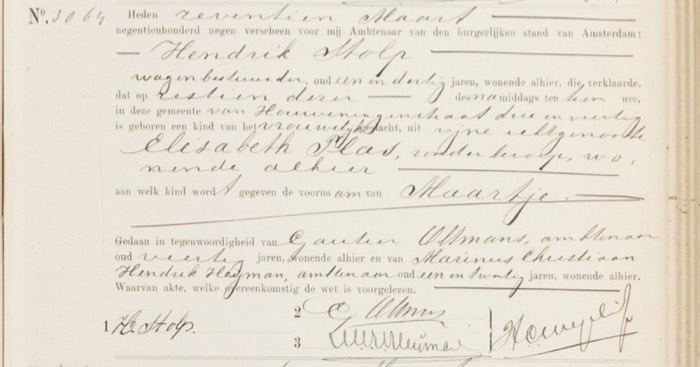 No. 3064 Heden zeventien Maart
negentienhonderd negen verscheen voor mij Ambtenaar van den burgerlijken stand van Amsterdam:
Hendrik Stolp
wagenbestuurder, oud een en dertig jaren, wonende alhier, die verklaarde,
dat op zestien dezer des namiddags ten tien ure,
in deze gemeente van Houweningenstraat drie en veertig
is geboren een kind van het vrouwelijk geslacht, uit zijne echtgenoote
Elisabeth Plas, zonder beroep, wo-
nende alhier
aan welk kind wordt gegeven de voornaam van Maartje.
Gedaan in tegenwoordigheid van Oltmans, ambtenaar
oud veertig jaren, wonende alhier en van Marinus Christiaan
Hendrik Heyman, ambtenaar oud een en twintig jaren, wonende alhier.
Waarvan akte, welke overeenkomstig de wet is voorgelezen.
2
1 H. Stolp.
3